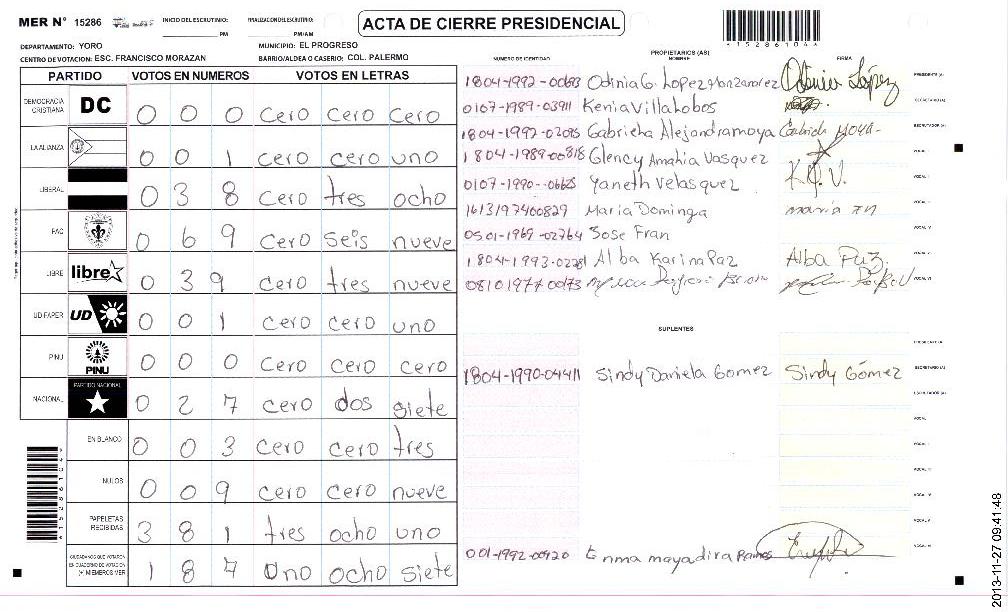 MER N° 15286
INICIO DEL ESCRUTINIO:
PM
FINALIZACION DEL ESCRUTINIO:
PM/AM
ACTA DE CIERRE PRESIDENCIAL
*15286104*
DEPARTAMENTO: YORO
MUNICIPIO: EL PROGRESO
CENTRO DE VOTACION: ESC. FRANCISCO MORAZAN
BARRIO/ALDEA O CASERIO: COL. PALERMO
PARTIDO VOTOS EN NUMEROS VOTOS EN LETRAS
DEMOCRACIA CRISTIANA DC 0 0 0 cero cero cero
LA ALIANZA 0 0 1 cero cero uno
LIBERAL 0 3 8 cero tres ocho
PAC 0 6 9 cero seis nueve
LIBRE libre 0 3 9 cero tres nueve
UD FAPER UD 0 0 1 cero cero uno
PINU PINU 0 0 0 cero cero cero
NACIONAL PARTIDO NACIONAL 0 2 7 cero dos siete
EN BLANCO 0 0 3 cero cero tres
NULOS 0 0 9 cero cero nueve
PAPELETAS RECIBIDAS 3 8 1 tres ocho uno
CIUDADANOS QUE VOTARON EN CUADERNO DE VOTACION (+) MIEMBROS MER 1 8 7 uno ocho siete
PROPIETARIOS (AS)
NUMERO DE IDENTIDAD NOMBRE FIRMA
1804-1992- Odinia G. Lopez PRESIDENTE (A)
0107-1989-03911 Kenia Villalobos SECRETARIO (A)
1804-1992- Gabriela Alejandra moya Gabriela Moya ESCRUTADOR (A)
1804-1989-00818 Glency Amahia Vasquez VOCAL I
0107-1990- Yaneth Velasquez K.Q.V. VOCAL II
1613197400829 Maria Dominga maria VOCAL III
0501-1969-02764 Jose Fran VOCAL IV
1804-1993- Alba Karina Paz Alba Paz. VOCAL V
0810197700173 VOCAL VI
SUPLENTES
PRESIDENTE (A)
1804-1990-04411 Sindy Daniela Gomez Sindy Gómez SECRETARIO (A)
ESCRUTADOR (A)
VOCAL I
VOCAL II
VOCAL III
VOCAL IV
VOCAL V
001-1992-00920 Enma mayadira Ramos VOCAL VI
2013-11-27 09:41:48